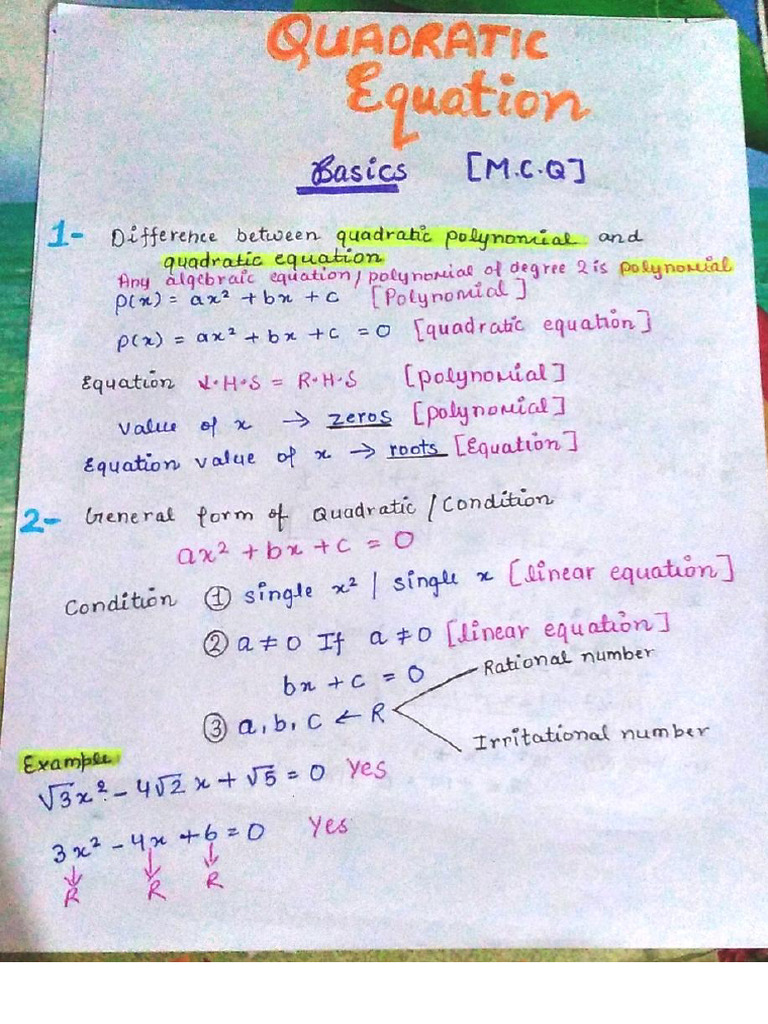 QUADRATIC
Equation
Basics [M.C.Q]
1- Difference between quadratic polynomial and
quadratic equation
Any algebraic equation/polynomial of degree 2 is polynomial
p(x) = ax² + bx + c [Polynomial]
p(x) = ax² + bx + c = 0 [quadratic equation]
Equation L.H.S = R.H.S [polynomial]
value of x → zeros [polynomial]
Equation value of x → roots [Equation]
2- General form of Quadratic / Condition
ax² + bx + c = 0
Condition ① single x² / single x [linear equation]
② a ≠ 0 If a ≠ 0 [linear equation]
bx + c = 0
Rational number
③ a, b, c ← R
Irritational number
Example:
√3x² - 4√2 x + √5 = 0 Yes
3x² - 4x + 6 = 0 Yes
R R R